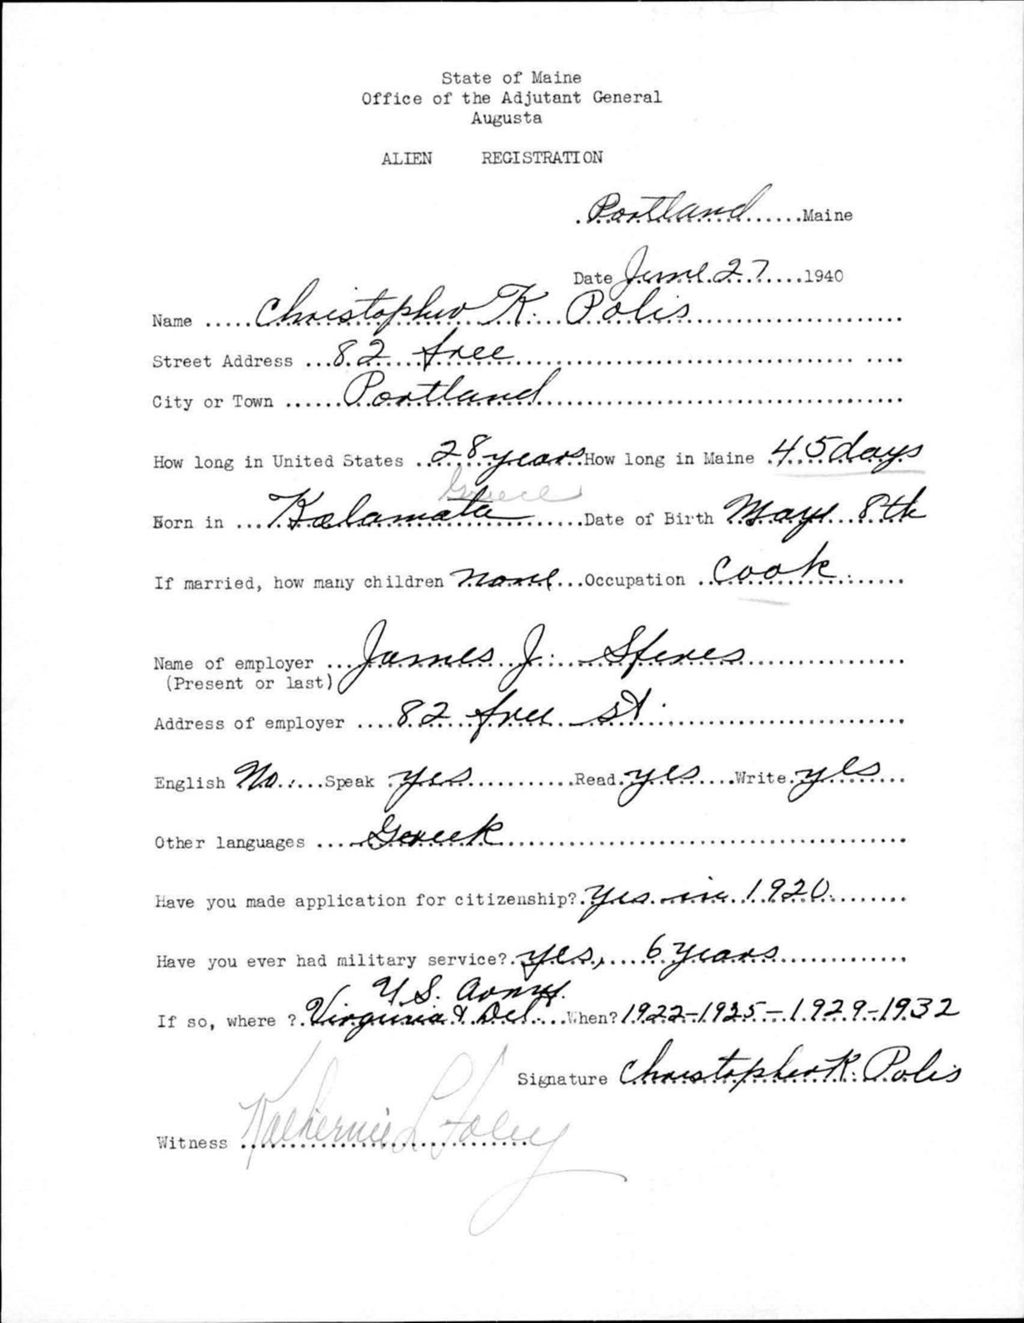 State of Maine
Office of the Adjutant General
Augusta
ALIEN REGISTRATION
Portland Maine
Date June 27 1940
Name Christopher K. Polis
Street Address 82 free
City or Town Portland
How long in United States 28 years How long in Maine 45 days
Greece
Born in Kalamata Date of Birth May 8th
If married, how many children none Occupation Cook
Name of employer James J.
(Present or last)
Address of employer 82 free st.
English No. Speak yes Read yes Write yes
Other languages Greek
Have you made application for citizenship? Yes in 1920
Have you ever had military service? yes, 6 years
U.S. Army.
If so, where ? Virginia & Del. When? 1922-1925-1929-1932
Signature Christopher K. Polis
Witness Katherine L Foley